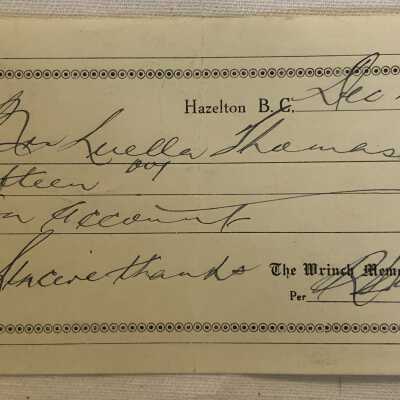 Hazelton B. C. Dec
Luella Thomas
teen 00/
on account
Sincere thanks The Wrinch Mem
Per